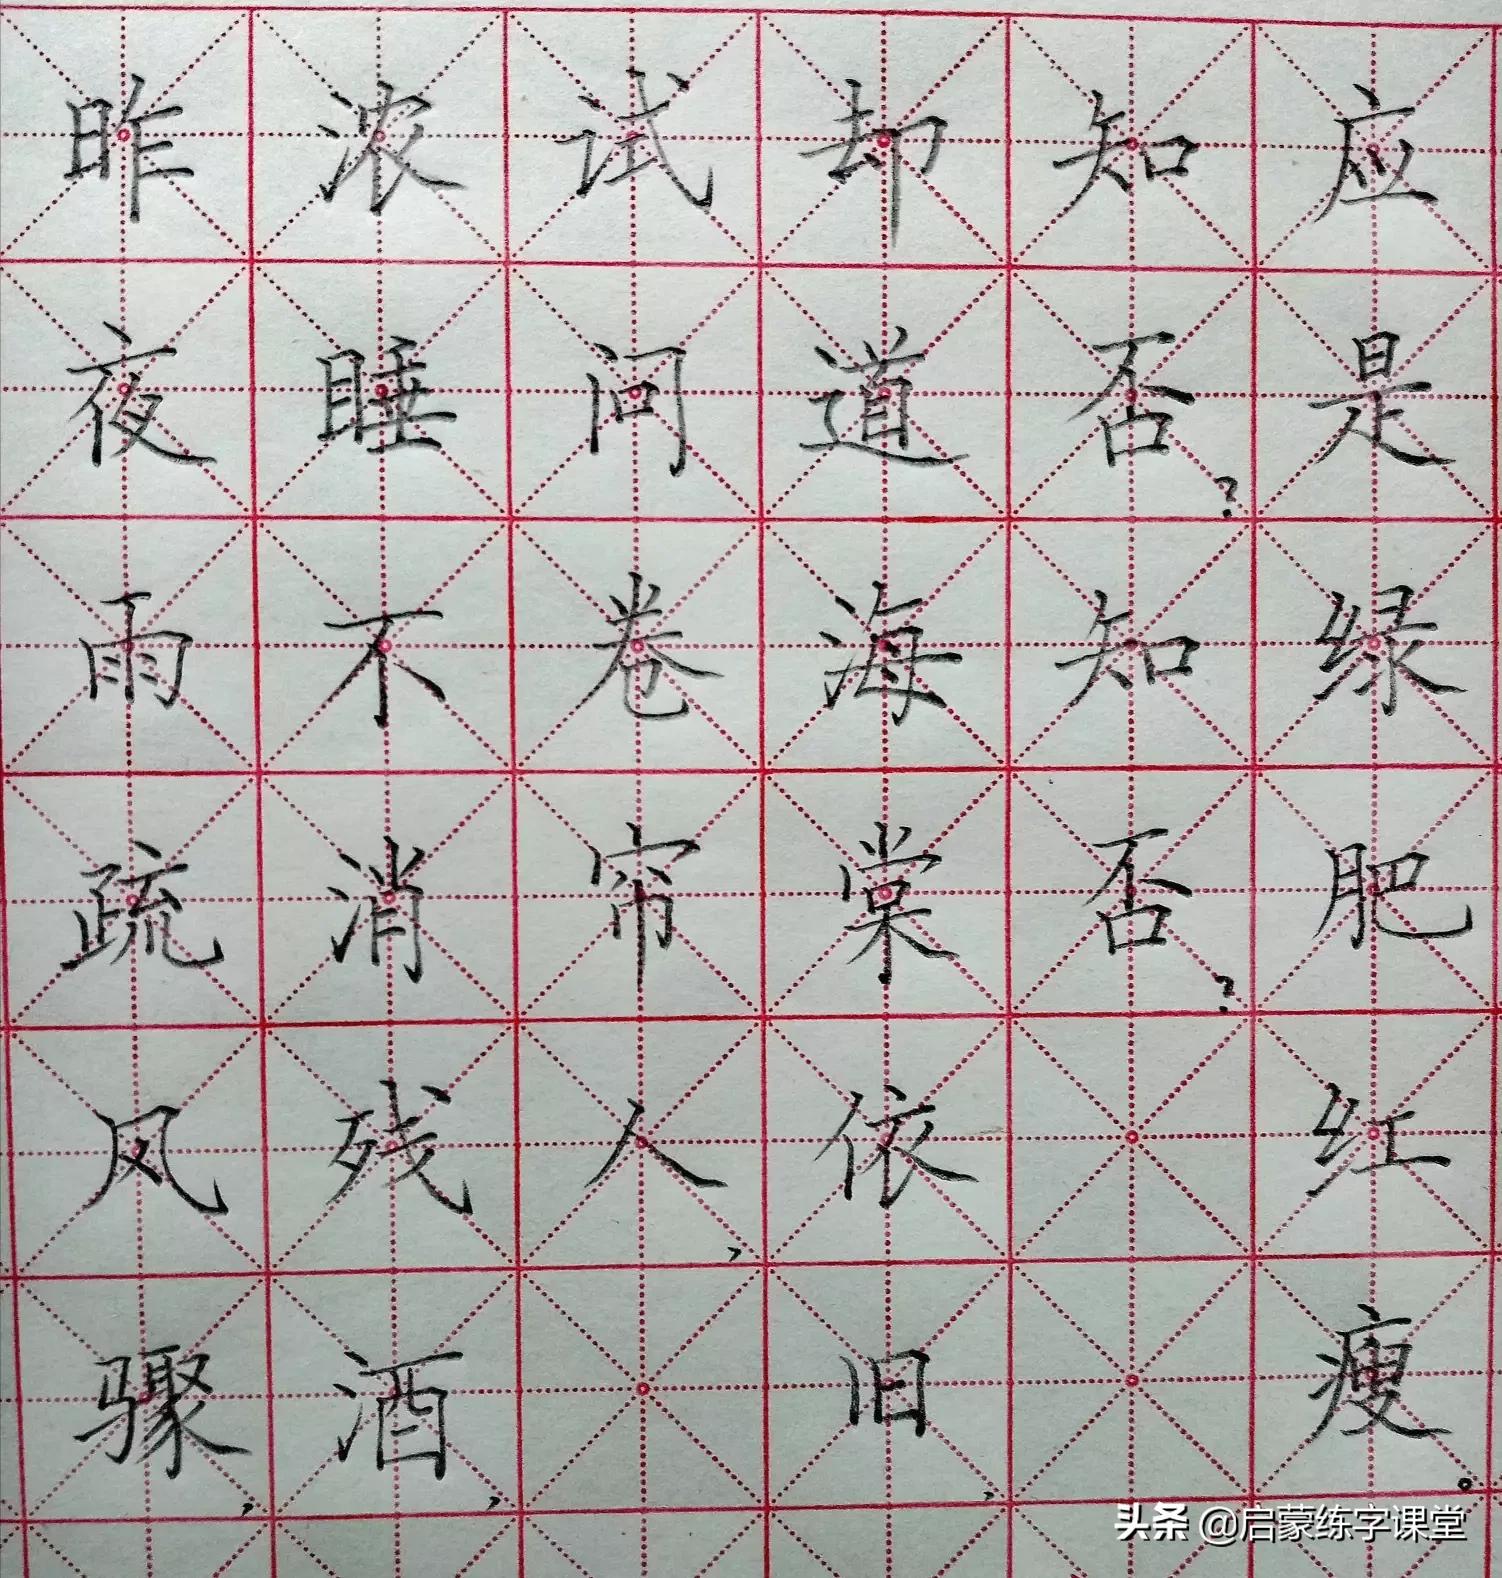 昨夜雨疏风骤，
浓睡不消残酒，
试问卷帘人，
却道海棠依旧，
知否？知否？
应是绿肥红瘦。
头条 @启蒙练字课堂